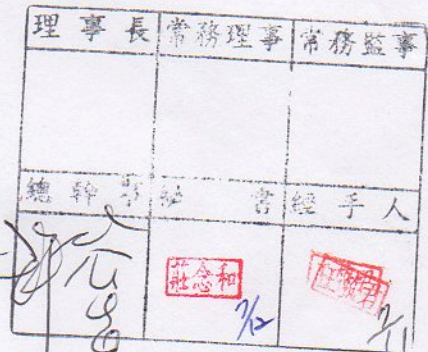 理事長 常務理事 常務監事
總幹事 秘書 經手人
莊念和
7/12
7/11